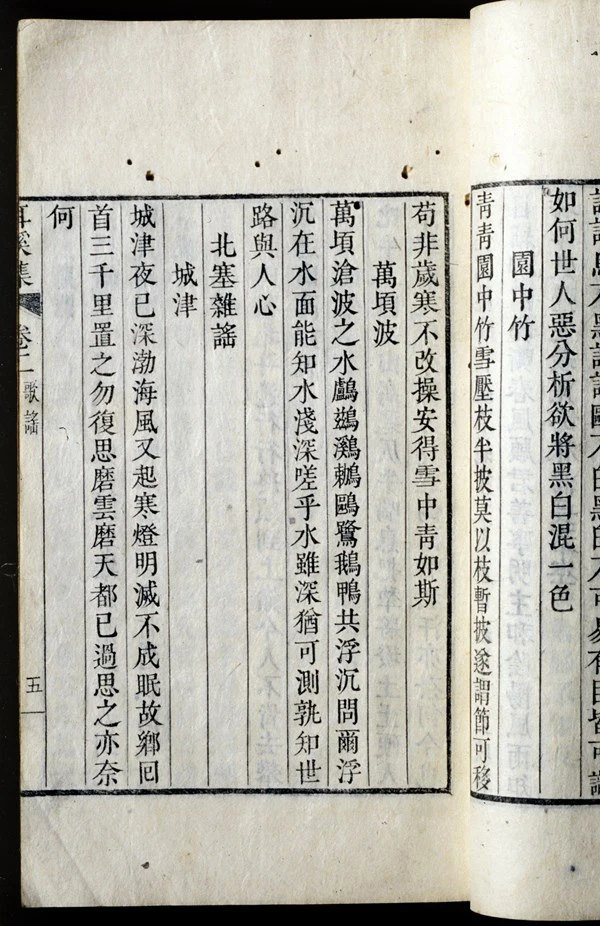 如何世人惡分析欲將黑白混一色
園中竹
靑靑園中竹雪壓枝半披莫以枝暫披遂謂節可移
苟非歲寒不改操安得雪中靑如斯
萬頃波
萬頃滄波之水鸕鷀鸂鶒鷗鷺鵝鴨共浮沉問爾浮
沉在水面能知水淺深嗟乎水雖深猶可測孰知世
路與人心
北塞雜謠
城津
城津夜已深渤海風又起寒燈明滅不成眠故鄉回
首三千里置之勿復思磨雲磨天都已過思之亦奈
何
耳溪集 卷二 歌謠 五